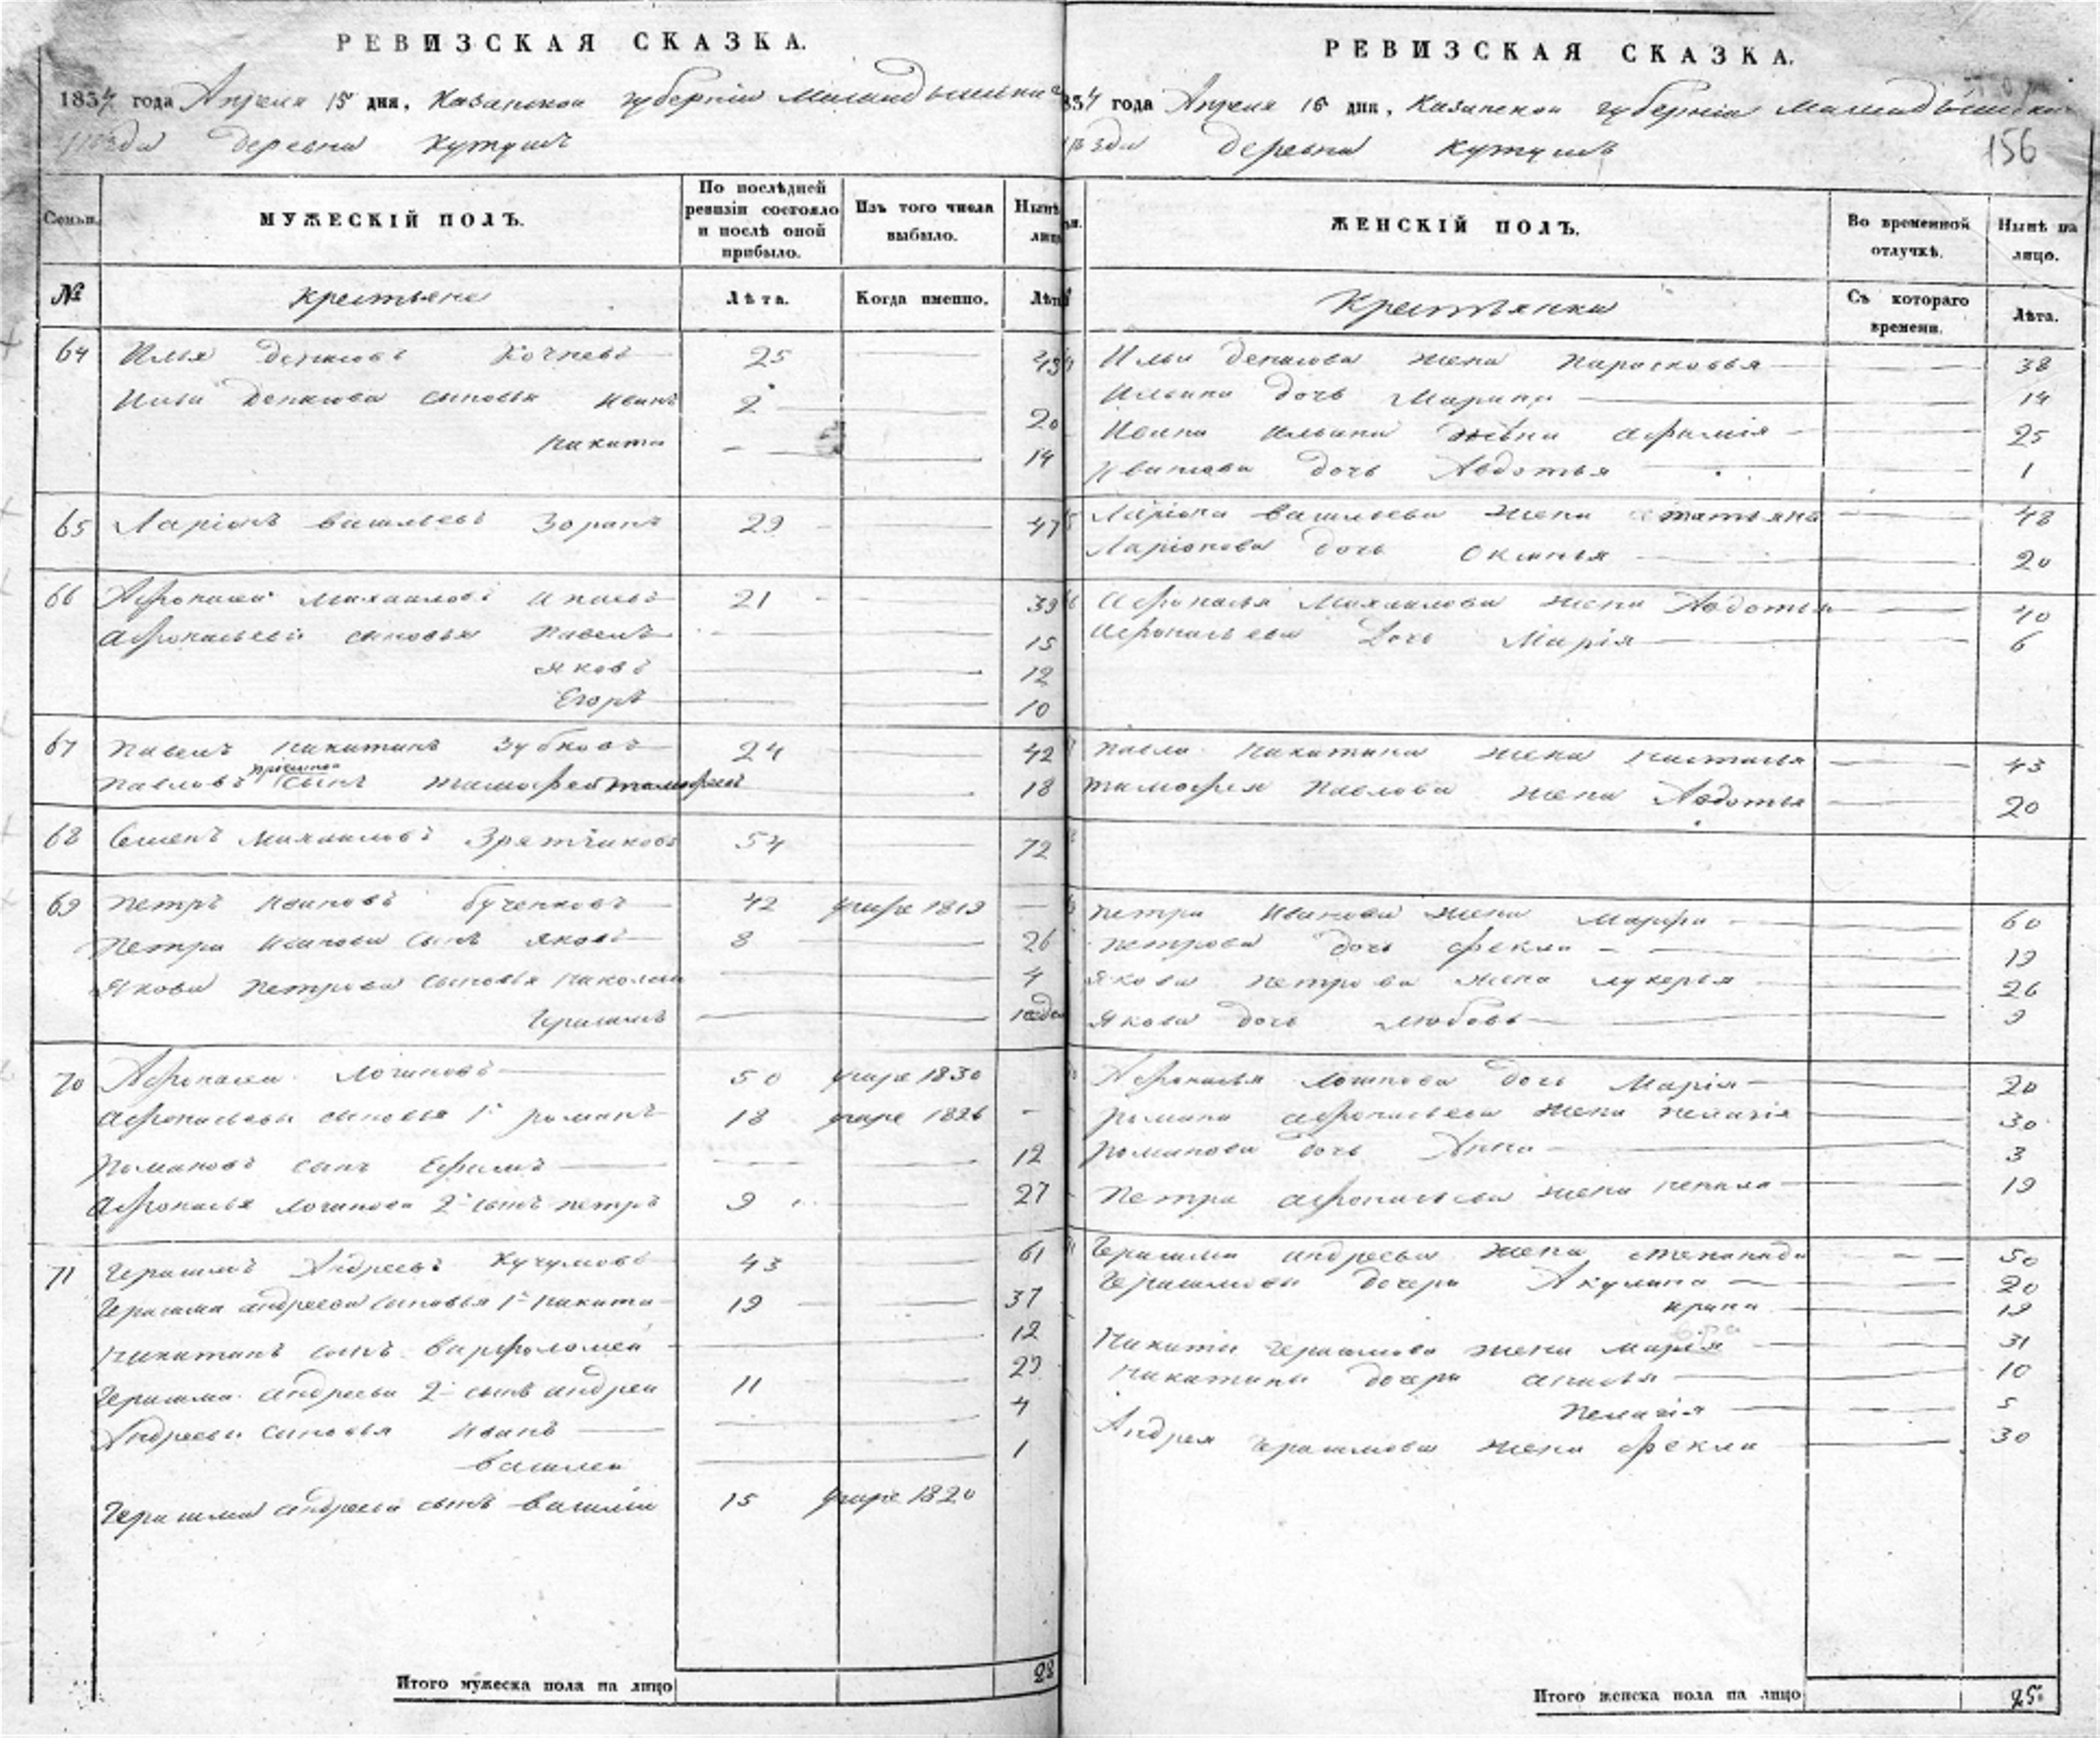 РЕВИЗСКАЯ СКАЗКА.
1834 года Апреля 15 дня, Казанской губерніи
уѣзда деревни Кутушъ
Семьи.
МУЖЕСКІЙ ПОЛЪ.
По послѣдней ревизіи состояло и послѣ оной прибыло.
Изъ того числа выбыло.
Нынѣ лицо
№
Крестьяне
Лѣта.
Когда именно.
Лѣта
64 Илья Денисовъ 25 43
Ильи Денисова сыновья Иванъ 2 20
Никита — 14
65 Ларіонъ Васильевъ 29 47
66 Афонасей Михаиловъ 21 39
Афонасьевы сыновья Павелъ 15
Яковъ 12
Егоръ 10
67 Павелъ Никитинъ Зубковъ 24 42
Павловъ сынъ Тимофей 18
68 Семенъ Михаиловъ 54 72
69 Петръ Ивановъ 42 умре 1819 —
Петра Иванова сынъ Яковъ 8 26
Якова Петрова сыновья Николай 4
Герасимъ
70 Афонасей Логиновъ 50 умре 1830
Афонасьевы сыновья 1й Романъ 18 умре 1826 —
Романовъ сынъ Ефимъ 12
Афонасья Логинова 2й сынъ Петръ 9 27
71 Герасимъ Андреевъ Кучумовъ 43 61
Герасима Андреева сыновья 1й Никита 19 37
Никитинъ сынъ Варфоломей 12
Герасима Андреева 2й сынъ Андрей 11 29
Андреевы сыновья Иванъ 4
Василей 1
Герасима Андреева сынъ Василій 15 умре 1820
Итого мужеска пола на лицо 28
РЕВИЗСКАЯ СКАЗКА.
834 года Апреля 15 дня, Казанской губерніи
156
уѣзда деревни Кутушъ
ЖЕНСКІЙ ПОЛЪ.
Во временной отлучкѣ.
Нынѣ на лицо.
Крестьянки
Съ котораго времени.
Лѣта.
Ильи Денисова жена Парасковья 38
Ильина дочь Марина 14
Ивана Ильина жена 25
Иванова дочь Авдотья 1
Ларіона Васильева жена Татьяна 48
Ларіонова дочь 20
Афонасья Михаилова жена Авдотья 40
Афонасьева дочь Марія 6
Павла Никитина жена Настасья 43
Тимофея Павлова жена Авдотья 20
Петра Иванова жена Марфа 60
Петрова дочь Фекла 19
Якова Петрова жена Лукерья 26
Якова дочь Любовь 9
Афонасья Логинова дочь Марія 20
Романа Афонасьева жена Пелагія 30
Романова дочь Анна 3
Петра Афонасьева жена 19
Герасима Андреева жена Степанида 50
Герасимовы дочери Акулина 20
Ирина 19
Никиты Герасимова жена Марья 31
Никитины дочери Анисья 10
Пелагія 5
Андрея Герасимова жена Фекла 30
Итого женска пола на лицо 25.